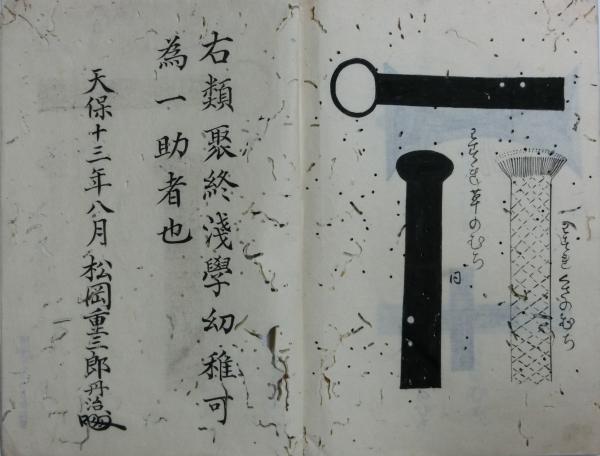 のむち
革のむち
同
右類聚終淺學幼稚可
為一助者也
天保十三年八月 松岡重三郎丹治